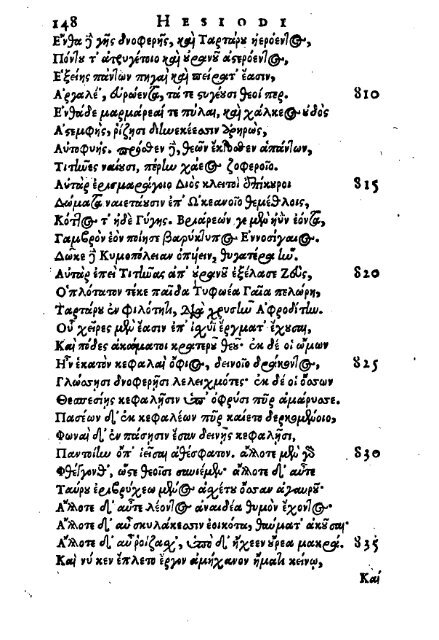 148 HESIODI
Ενθα δὲ γῆς δνοφερῆς, καὶ Ταρτάρου ἠερόεντος,
Πόντου τ' ἀτρυγέτοιο καὶ οὐρανοῦ ἀστερόεντος,
Εξείης πάντων πηγαὶ καὶ πείρατ' ἔασιν,
Αργαλέ', εὐρώεντα, τά τε στυγέουσι θεοί περ. 810
Ενθάδε μαρμάρεαί τε πύλαι, καὶ χάλκεος οὐδὸς
Αστεμφὴς, ῥίζησι διηνεκέεσσιν ἀρηρὼς,
Αὐτοφυής. πρόσθεν δὲ, θεῶν ἔκτοσθεν ἁπάντων,
Τιτῆνες ναίουσι, πέρην χάεος ζοφεροῖο.
Αὐτὰρ ἐρισμαράγοιο Διὸς κλειτοὶ ἐπίκουροι 815
Δώματα ναιετάουσιν ἐπ' Ωκεανοῖο θεμέθλοις,
Κότ]ος τ' ἠδὲ Γύγης. Βριάρεών γε μὲν ἠῢν ἐόντα,
Γαμβρὸν ἑὸν ποίησε βαρύκτυπος Εννοσίγαιος.
Δῶκε δὲ Κυμοπόλειαν ὀπυίειν, θυγατέρα ἥν.
Αὐτὰρ ἐπεὶ Τιτῆνας ἀπ' οὐρανοῦ ἐξέλασε Ζεὺς, 820
Ὁπλότατον τέκε παῖδα Τυφωέα Γαῖα πελώρη,
Ταρτάρου ἐν φιλότητι, διὰ χρυσέην Αφροδίτην.
Οὗ χεῖρες μὲν ἔασιν ἐπ' ἰσχύϊ ἔργματ' ἔχουσαι,
Καὶ πόδες ἀκάματοι κρατεροῦ θεοῦ· ἐκ δέ οἱ ὤμων
Ην ἑκατὸν κεφαλαὶ ὄφιος, δεινοῖο δράκοντος, 825
Γλώσσῃσι δνοφερῇσι λελειχμότες· ἐκ δέ οἱ ὄσσων
Θεσπεσίῃς κεφαλῇσιν ὑπ' ὀφρύσι πῦρ ἀμάρυσσε.
Πασέων δ' ἐκ κεφαλέων πῦρ καίετο δερκομένοιο,
Φωναὶ δ' ἐν πάσῃσιν ἔσαν δεινῇς κεφαλῇσι,
Παντοίην ὄπ' ἰεῖσαι ἀθέσφατον. ἄλλοτε μὲν γὰρ 830
Φθέγγονθ', ὥστε θεοῖσι συνιέμεν· ἄλλοτε δ' αὖτε
Ταύρου ἐριβρύχεω μένος ἀσχέτου ὄσσαν ἀγαύρου·
Αλλοτε δ' αὖτε λέοντος ἀναιδέα θυμὸν ἔχοντος·
Αλλοτε δ' αὖ σκυλάκεσσιν ἐοικότα, θαύματ' ἀκοῦσαι·
Αλλοτε δ' αὖ ῥοίζασχ', ὑπὸ δ' ἤχεεν οὔρεα μακρά. 835
Καί νύ κεν ἔπλετο ἔργον ἀμήχανον ἤματι κείνῳ,
Καί